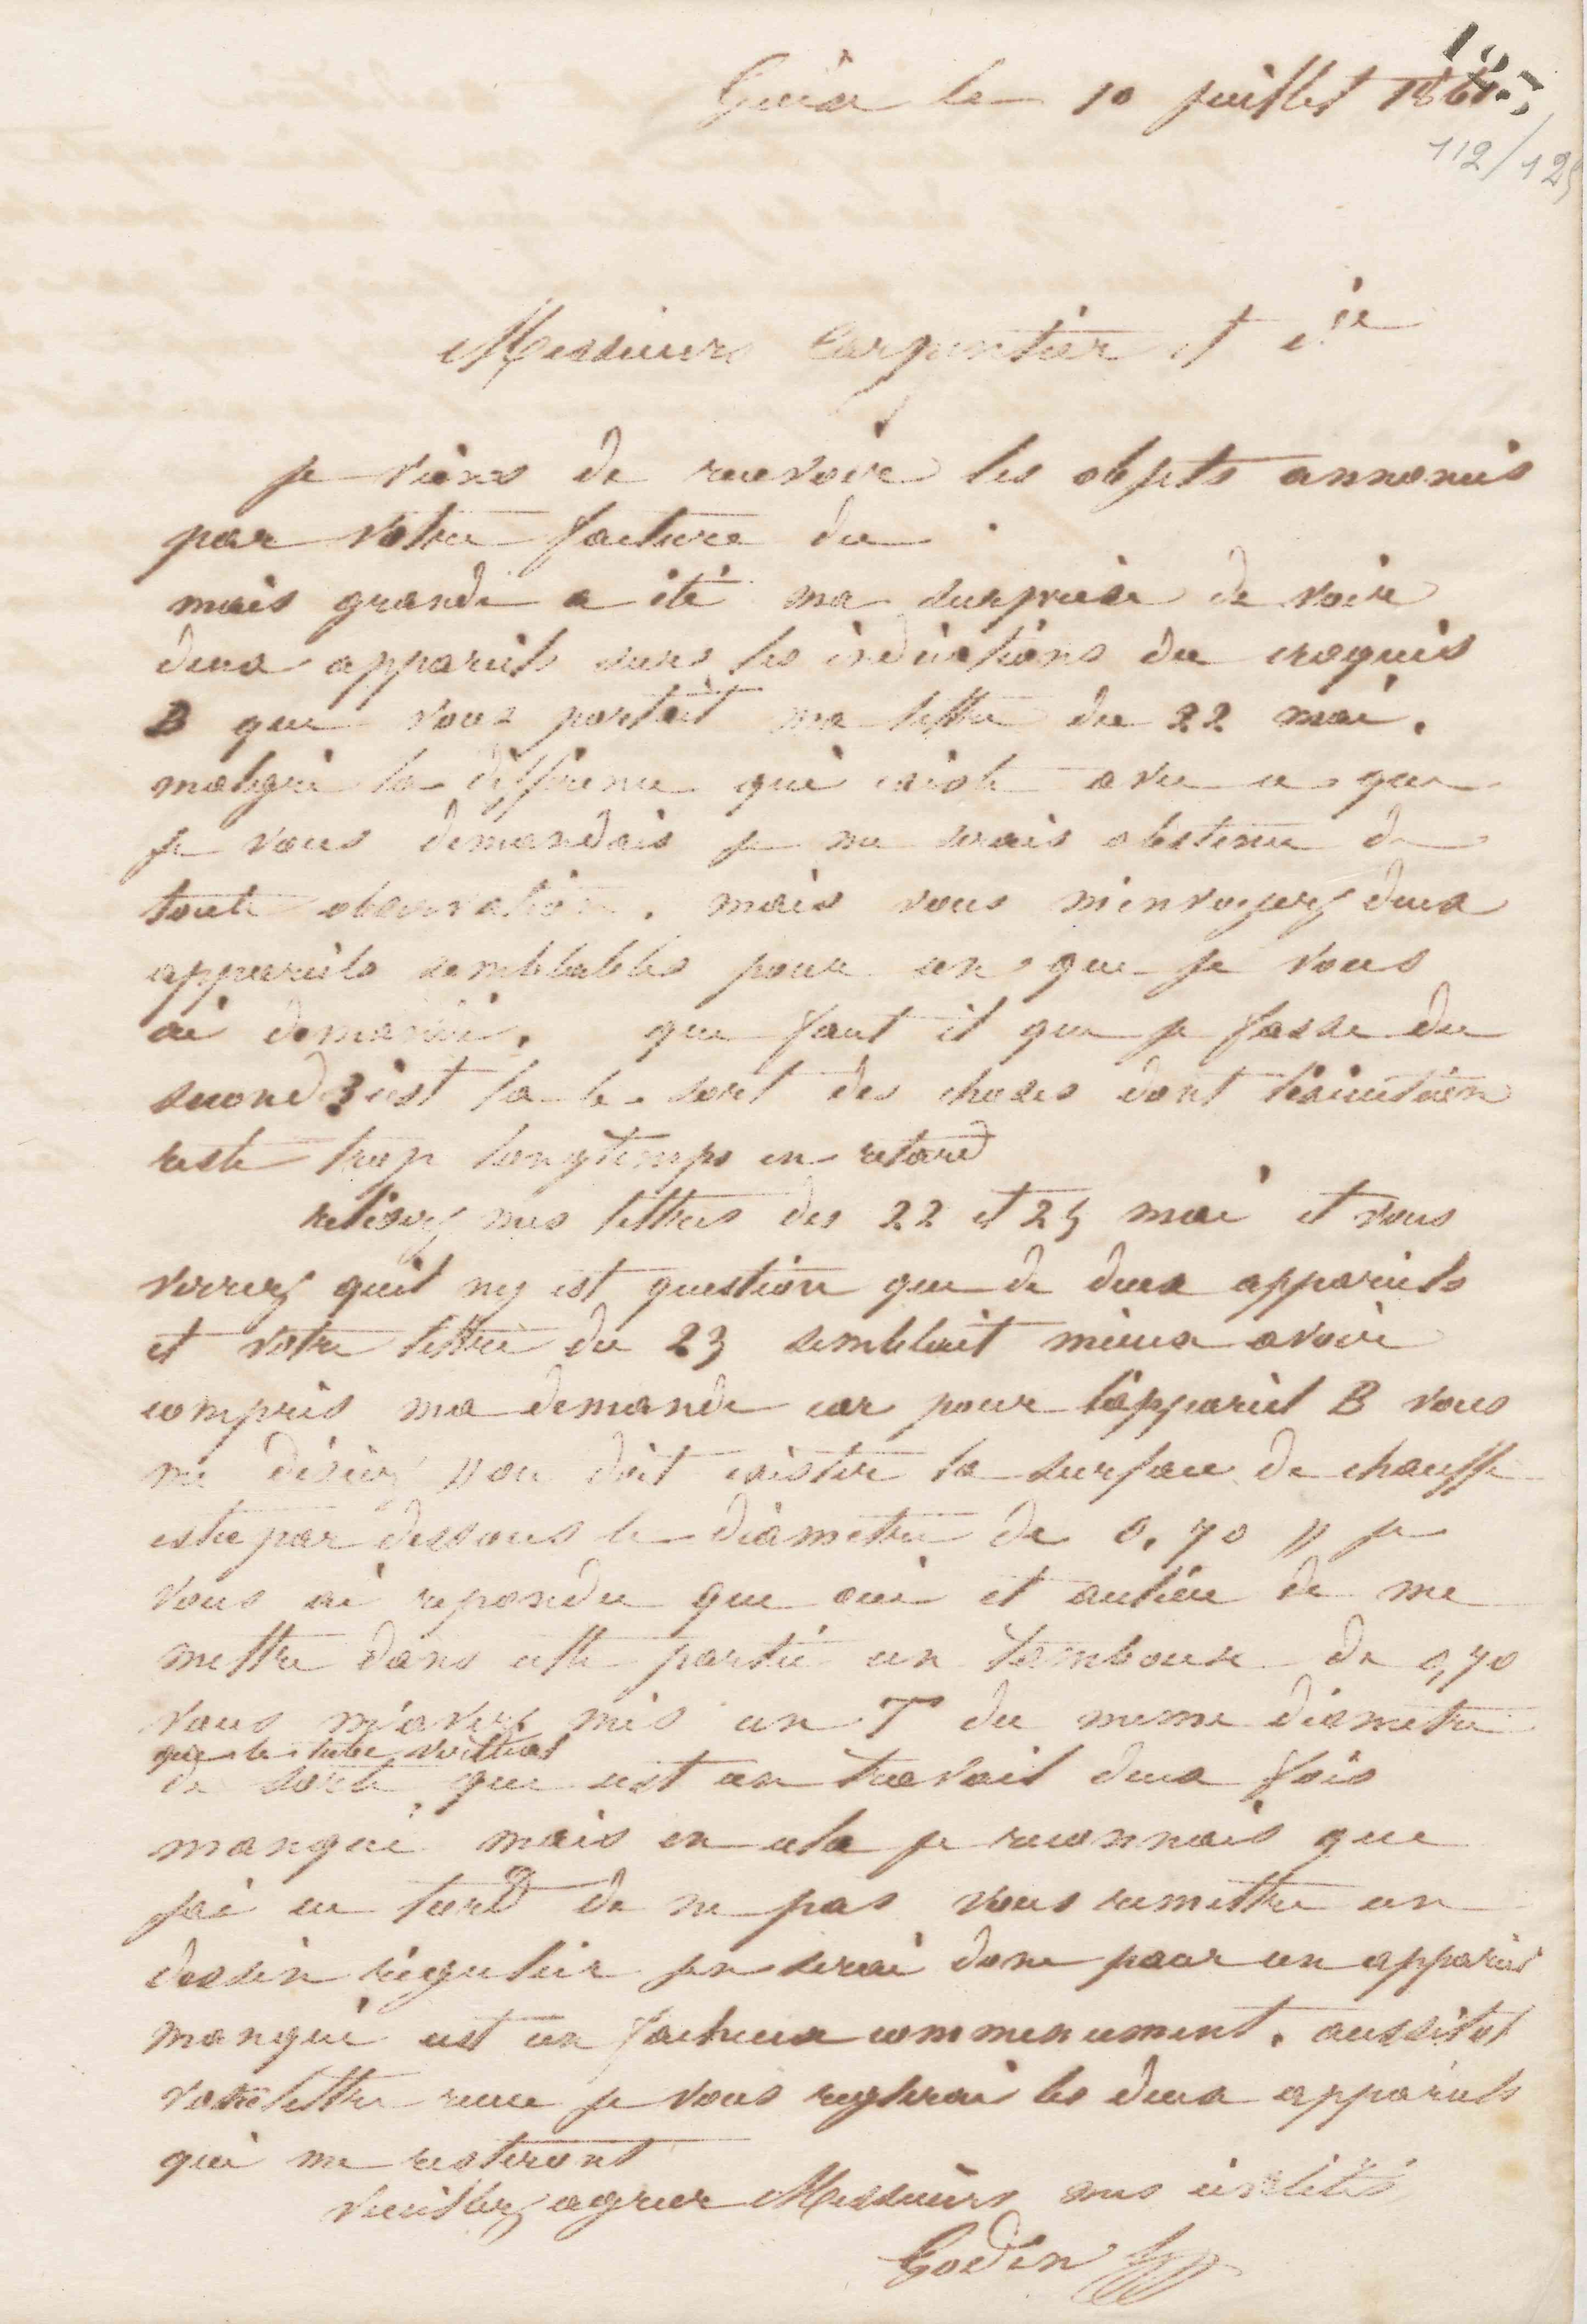 Guise le 10 juillet 186
125
112/125
Messieurs Carpentier et Cie
je viens de recevoir les objets annoncés
par votre facture du
mais grande a été ma surprise de voir
deux appareils sur les indications du croquis
B que vous portait ma lettre du 22 mai.
malgré la différence qui existe avec ce que
je vous demandais je me serais abstenu de
toute observation. mais vous m'envoyez deux
appareils semblables pour un que je vous
ai demandé. que faut il que je fasse du
second? c'est la le sort des choses dont l'exécution
reste trop longtemps en retard
relisez mes lettres des 22 et 25 mai et vous
verrez quil ny est question que de deux appareils
et votre lettre du 23 semblait mieux avoir
compris ma demande car pour l'appareil B vous
me disiez " ou doit exister la surface de chauffe
est ce par dessous le diametre de 0,70 " je
vous ai repondu que oui et aulieu de me
mettre dans cette partie un tambour de 0,70
vous m'avez mis un T du meme diametre
que le tube vertical
de sorte que c'est un travail deux fois
manqué mais en cela je reconnais que
j'ai eu tord de ne pas vous remettre un
dessin régulier j'en serai donc pour un appareil
manqué c'est un facheux commencement. aussitot
votre lettre recue je vous reglerai les deux appareils
qui me resteront
Veuillez agreer Messieurs mes civilités
Godin